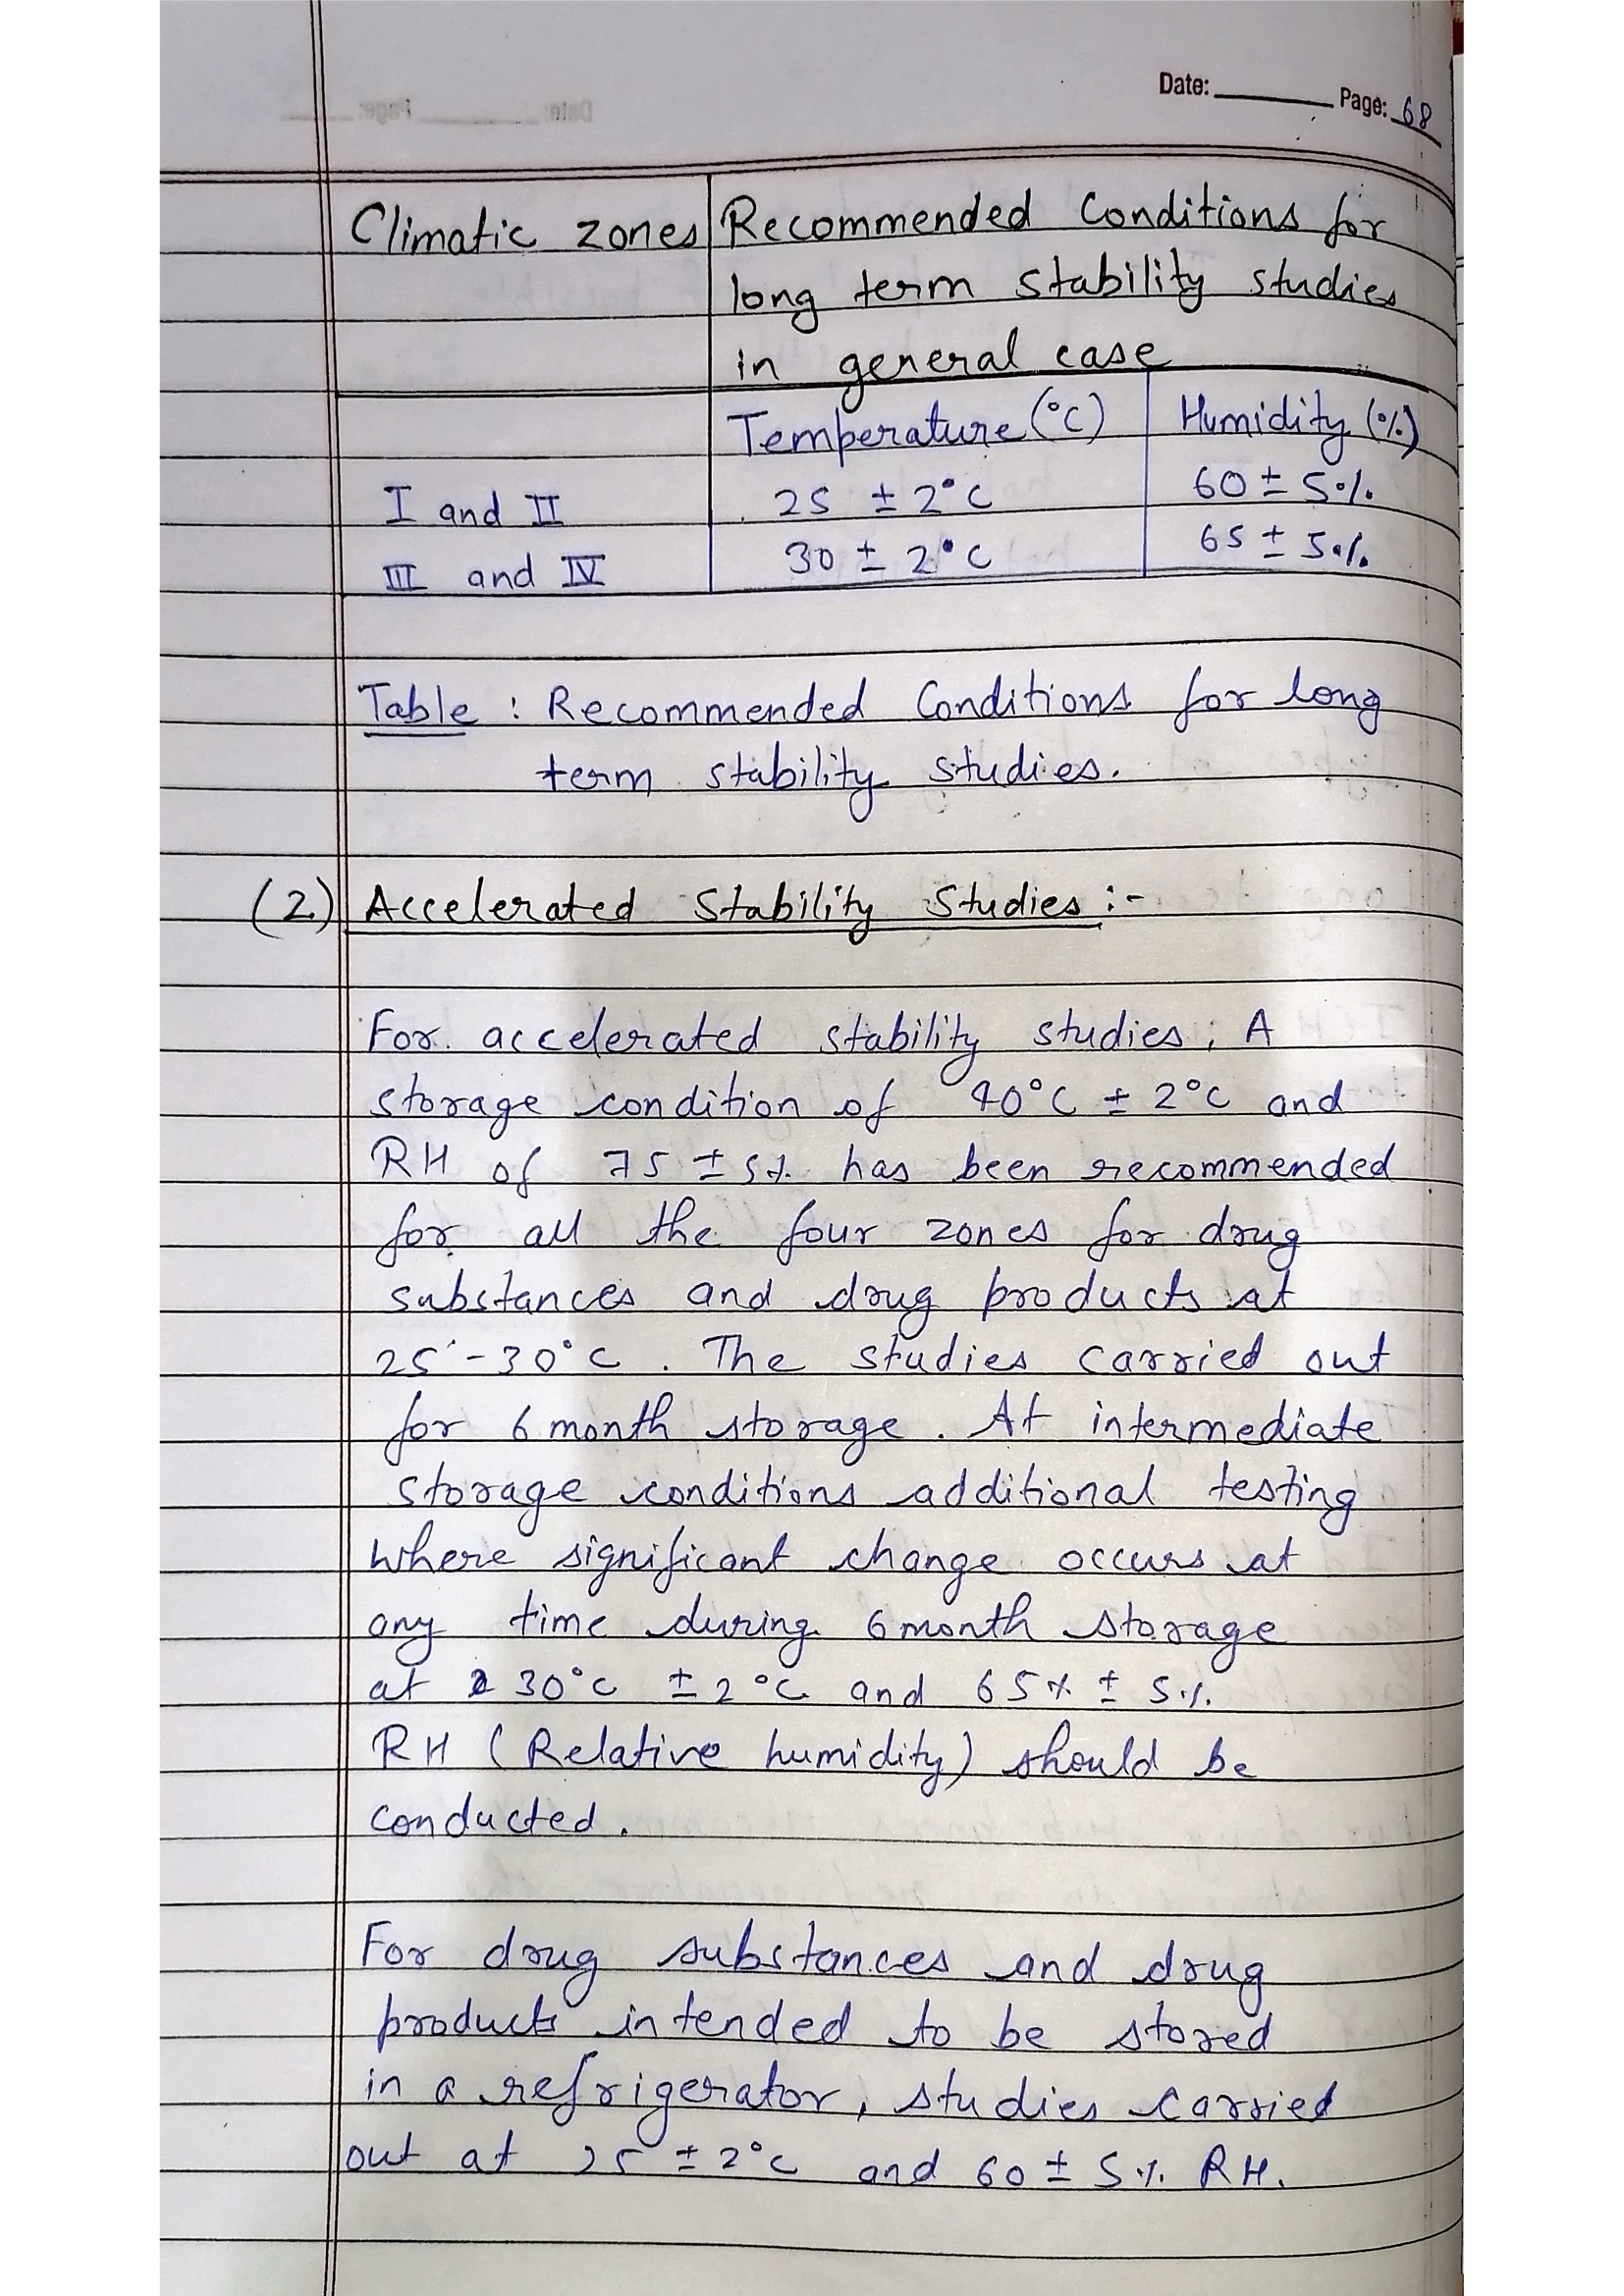 Date: Page: 68
Climatic zones Recommended Conditions for
long term stability studies
in general case
Temperature (°C) Humidity (%)
I and II 25 ± 2°C 60 ± 5%
III and IV 30 ± 2°C 65 ± 5%
Table : Recommended Conditions for long
term stability studies.
(2) Accelerated Stability Studies :-
For accelerated stability studies; A
storage condition of 40°C ± 2°C and
RH of 75 ± 5% has been recommended
for all the four zones for drug
substances and drug products at
25°-30°C. The studies carried out
for 6 month storage. At intermediate
storage conditions additional testing
where significant change occurs at
any time during 6 month storage
at 30°C ± 2°C and 65% ± 5%
RH (Relative humidity) should be
conducted.
For drug substances and drug
products intended to be stored
in a refrigerator, studies carried
out at 25 ± 2°C and 60 ± 5% RH.